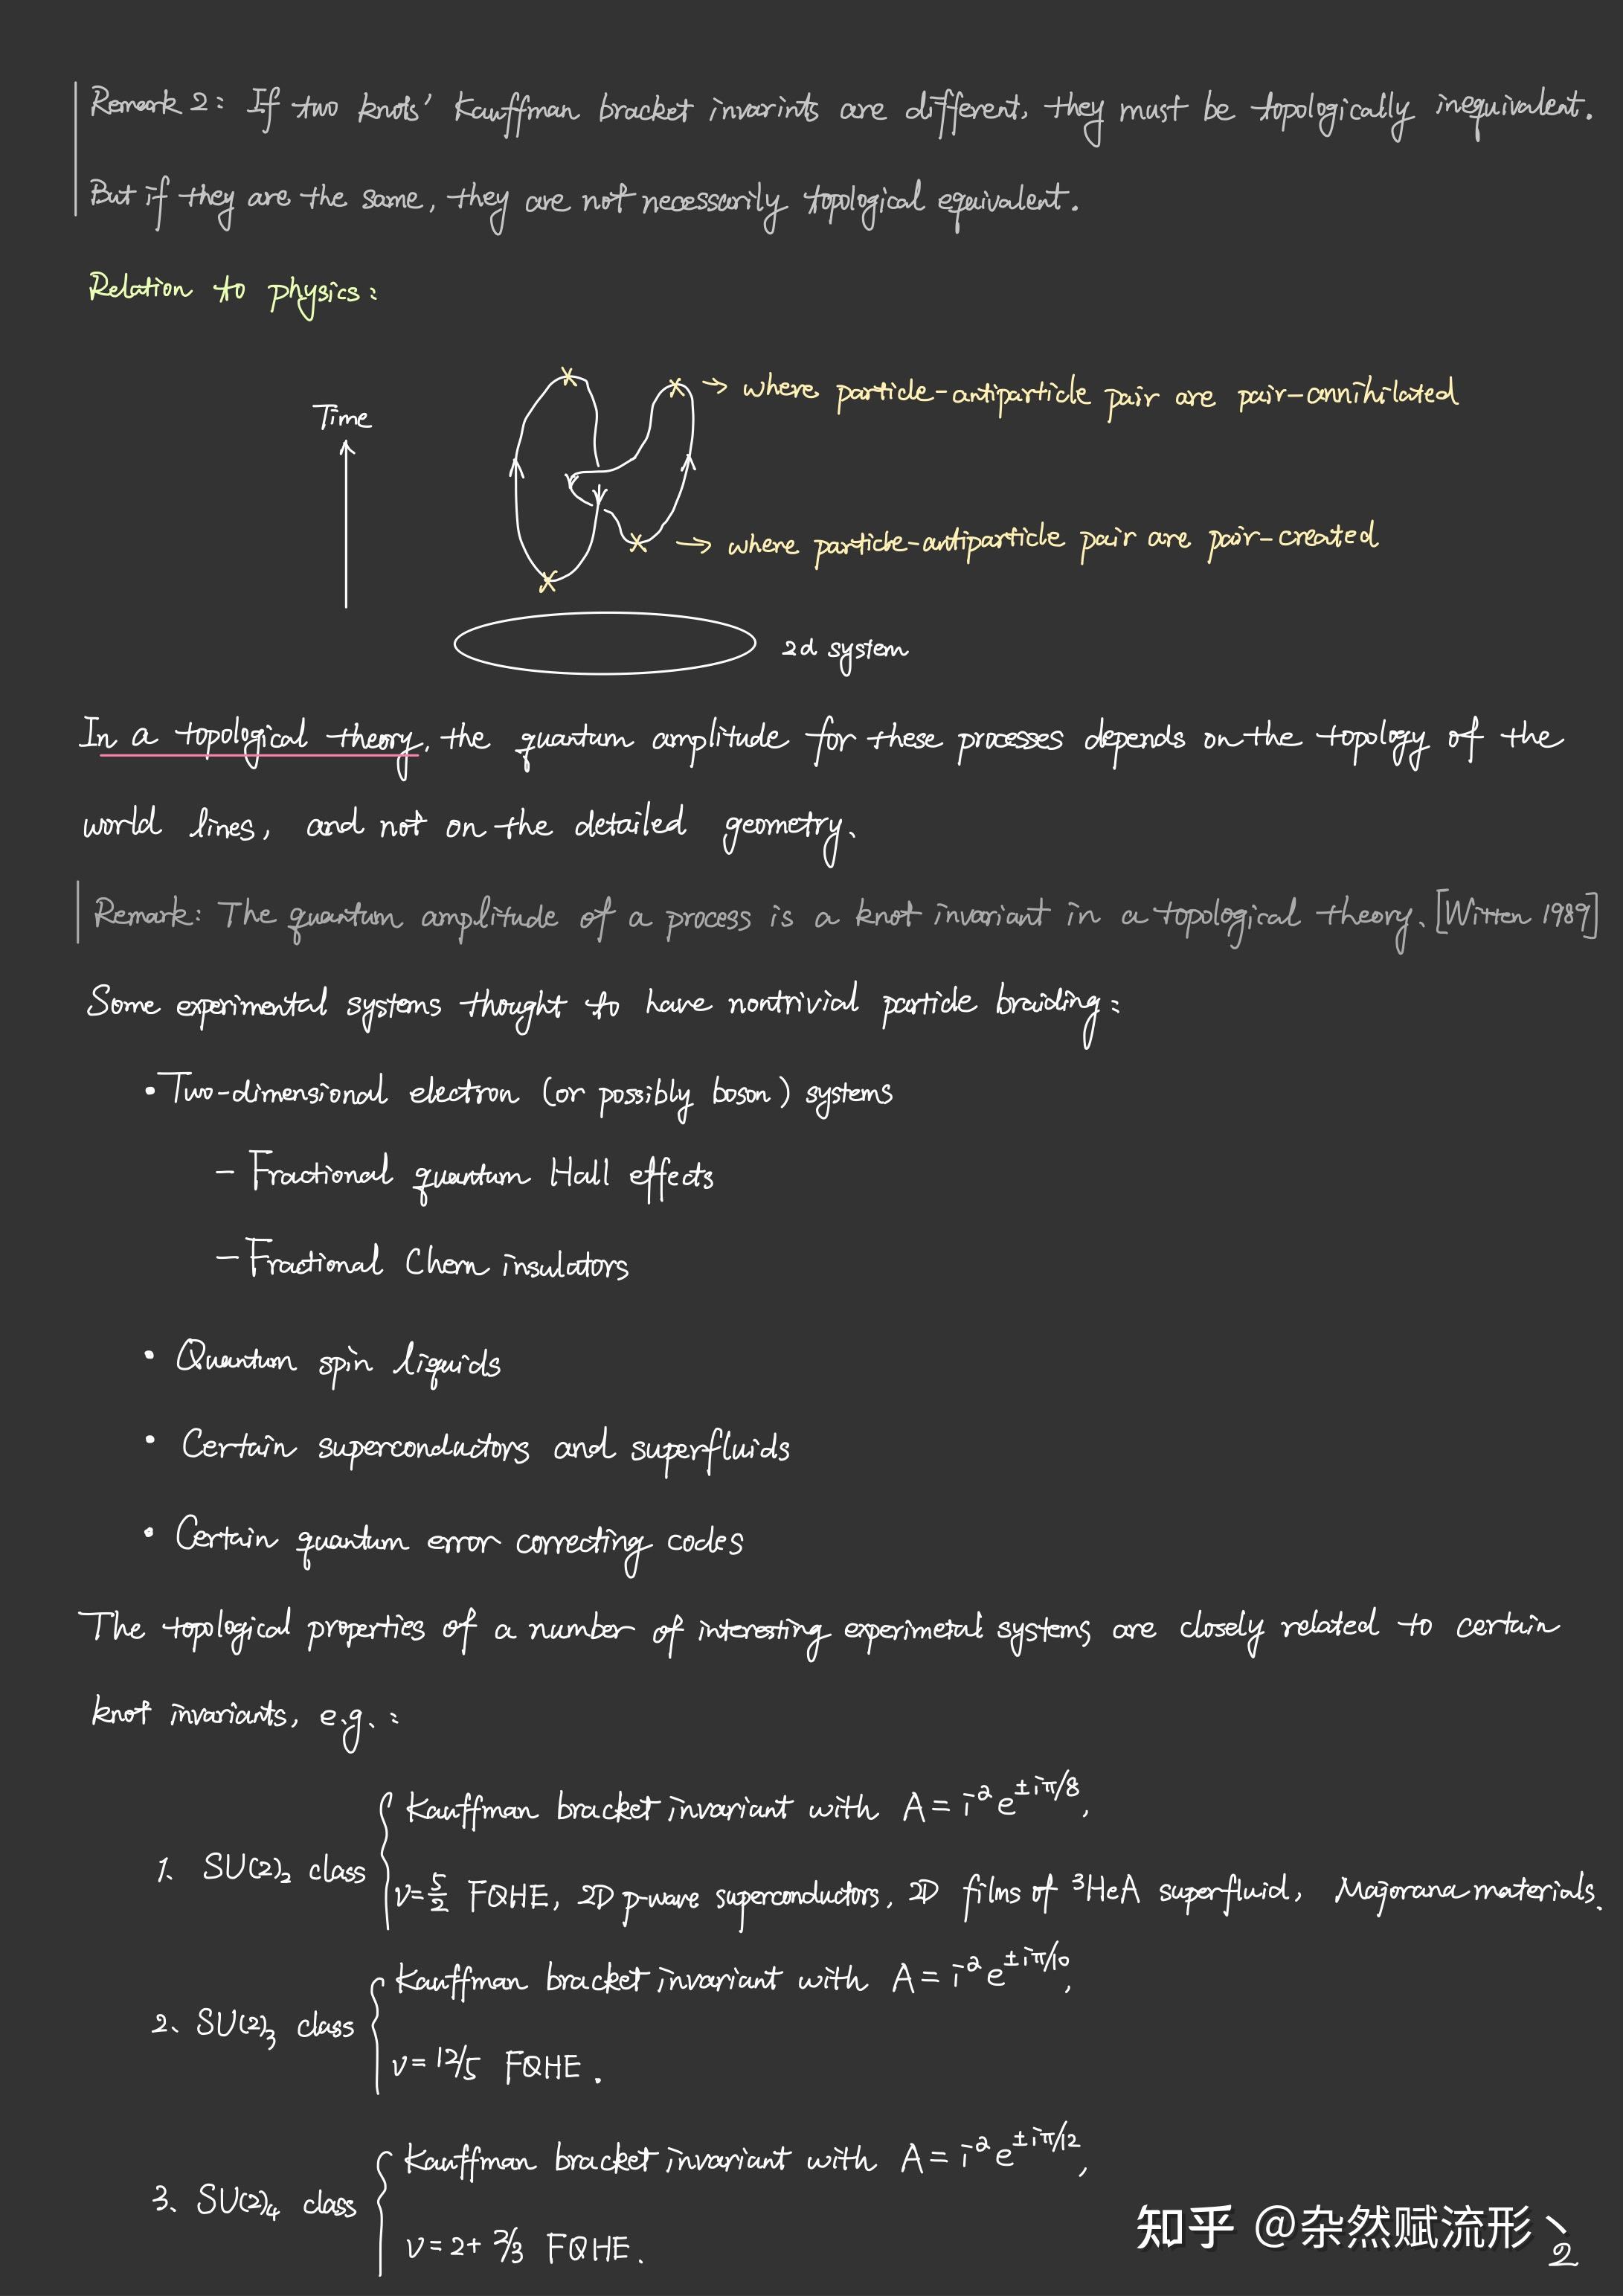 Remark 2: If two knots' Kauffman bracket invarints are different, they must be topologically inequivalent.
But if they are the same, they are not necessarily topological equivalent.
Relation to physics:
Time
→ where particle-antiparticle pair are pair-annihilated
→ where particle-antiparticle pair are pair-created
2d system
In a topological theory, the quantum amplitude for these processes depends on the topology of the
world lines, and not on the detailed geometry.
Remark: The quantum amplitude of a process is a knot invariant in a topological theory. [Witten 1989]
Some experimental systems thought to have nontrivial particle braiding:
• Two-dimensional electron (or possibly boson) systems
- Fractional quantum Hall effects
- Fractional Chern insulators
• Quantum spin liquids
• Certain superconductors and superfluids
• Certain quantum error correcting codes
The topological properties of a number of interesting experimetal systems are closely related to certain
knot invariants, e.g.:
1、 SU(2)₂ class
Kauffman bracket invariant with A = i^a e^{±iπ/8},
ν = 5/2 FQHE, 2D p-wave superconductors, 2D films of ³HeA superfluid, Majorana materials.
2、 SU(2)₃ class
Kauffman bracket invariant with A = i^a e^{±iπ/10},
ν = 12/5 FQHE.
3、 SU(2)₄ class
Kauffman bracket invariant with A = i^a e^{±iπ/12},
ν = 2 + 2/3 FQHE.
知乎 @杂然赋流形丶
2